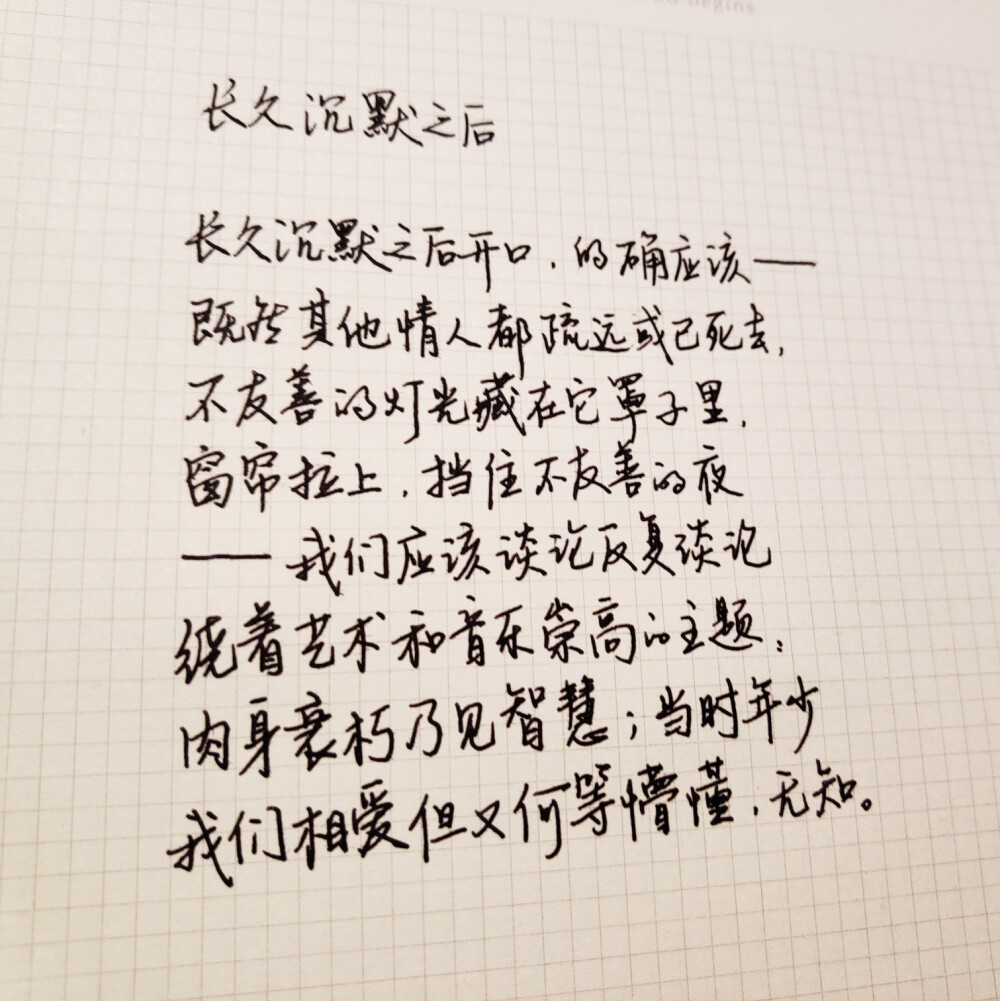 begins
长久沉默之后
长久沉默之后开口，的确应该——
既然其他情人都疏远或已死去，
不友善的灯光藏在它罩子里，
窗帘拉上，挡住不友善的夜
——我们应该谈论反复谈论
绕着艺术和音乐崇高的主题：
肉身衰朽乃见智慧；当时年少
我们相爱但又何等懵懂，无知。